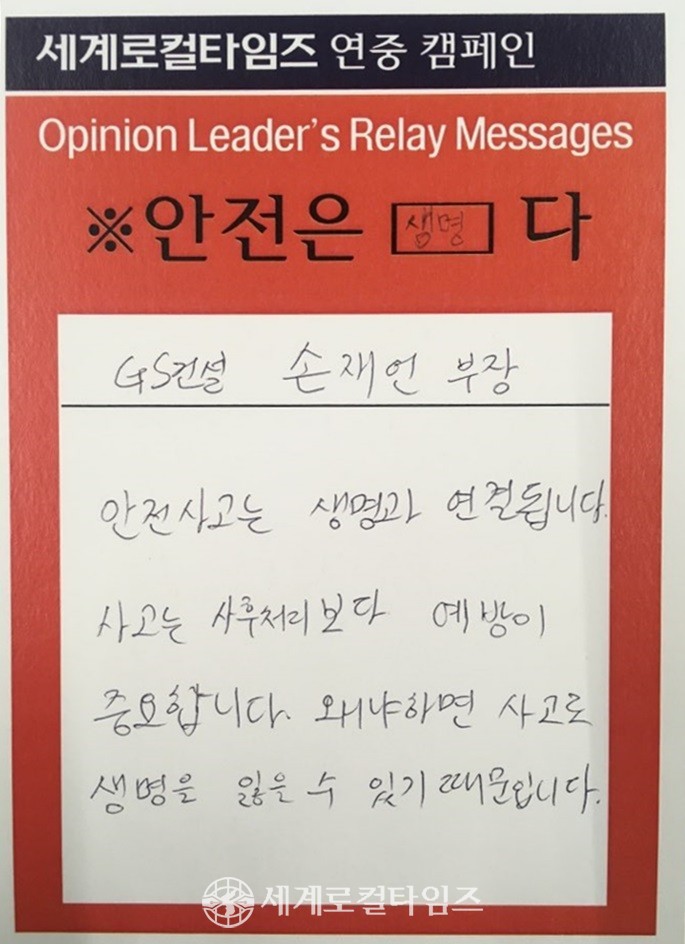 세계로컬타임즈 연중 캠페인
Opinion Leader's Relay Messages
※안전은 생명 다
GS건설 손재언 부장
안전사고는 생명과 연결됩니다.
사고는 사후처리보다 예방이
중요합니다. 왜냐하면 사고로
생명을 잃을 수 있기 때문입니다.
세계로컬타임즈